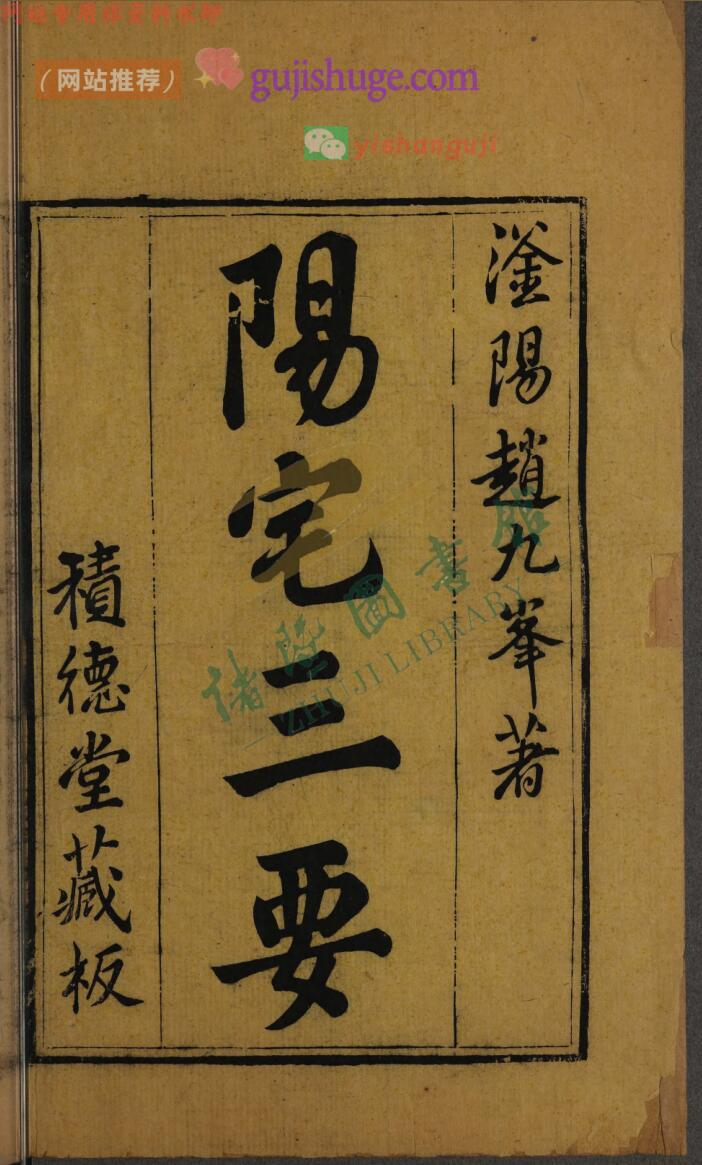 （网站推荐）gujishuge.com
yishanguji
滏陽趙九峯著
陽宅三要
積德堂藏板
諸暨圖書館
ZHUJI LIBRARY